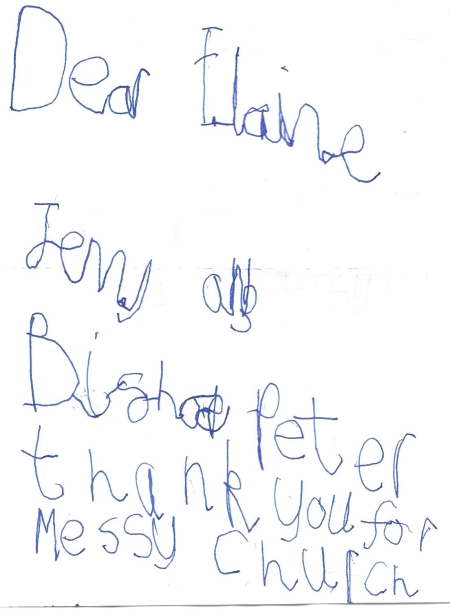 Dear Elaine
Jenny and
Bishop Peter
thank you for
Messy Church